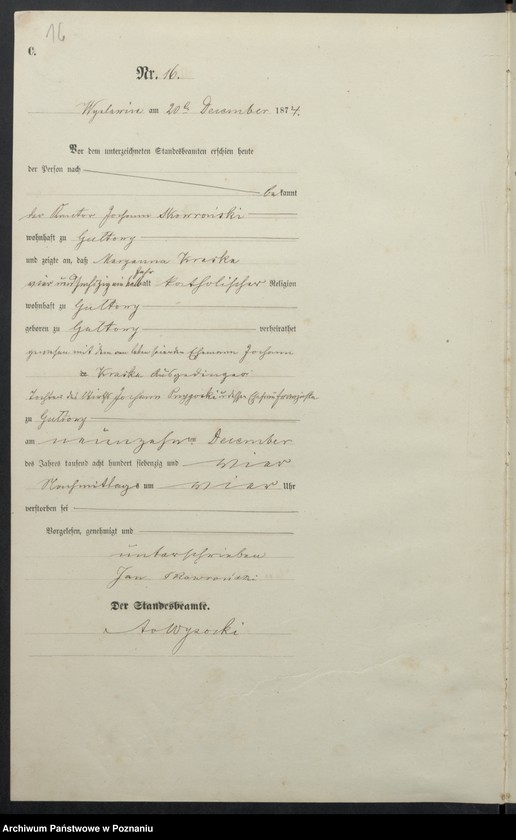 16
C.
Nr. 16.
am 20ten December 1874.
Vor dem unterzeichneten Standesbeamten erschien heute
der Person nach
bekannt
der Johann Skowroński
wohnhaft zu Gultowy
und zeigte an, daß Maryanna Kraska
vier und ein halb Jahr alt katholischer Religion
wohnhaft zu Gultowy
geboren zu Gultowy verheirathet
gewesen mit dem Ehemann Johann
Kraska Ausgedinger
Tochter des Johann und dessen Ehefrau
zu Gultowy
am neunzehn December
des Jahres tausend acht hundert siebenzig und vier
Nachmittags um vier Uhr
verstorben sei
Vorgelesen, genehmigt und
unterschrieben
Jan Skowroński
Der Standesbeamte.
Wysocki
Archiwum Państwowe w Poznaniu